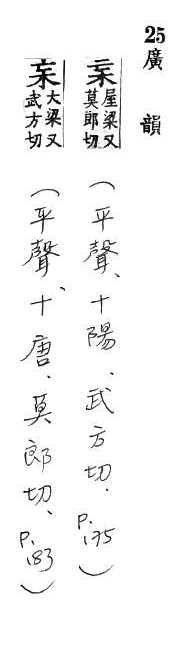 25廣韻
杗屋梁又莫郎切(平聲、十陽、武方切.P.175)
杗大梁又武方切(平聲、十唐、莫郎切、P.183)